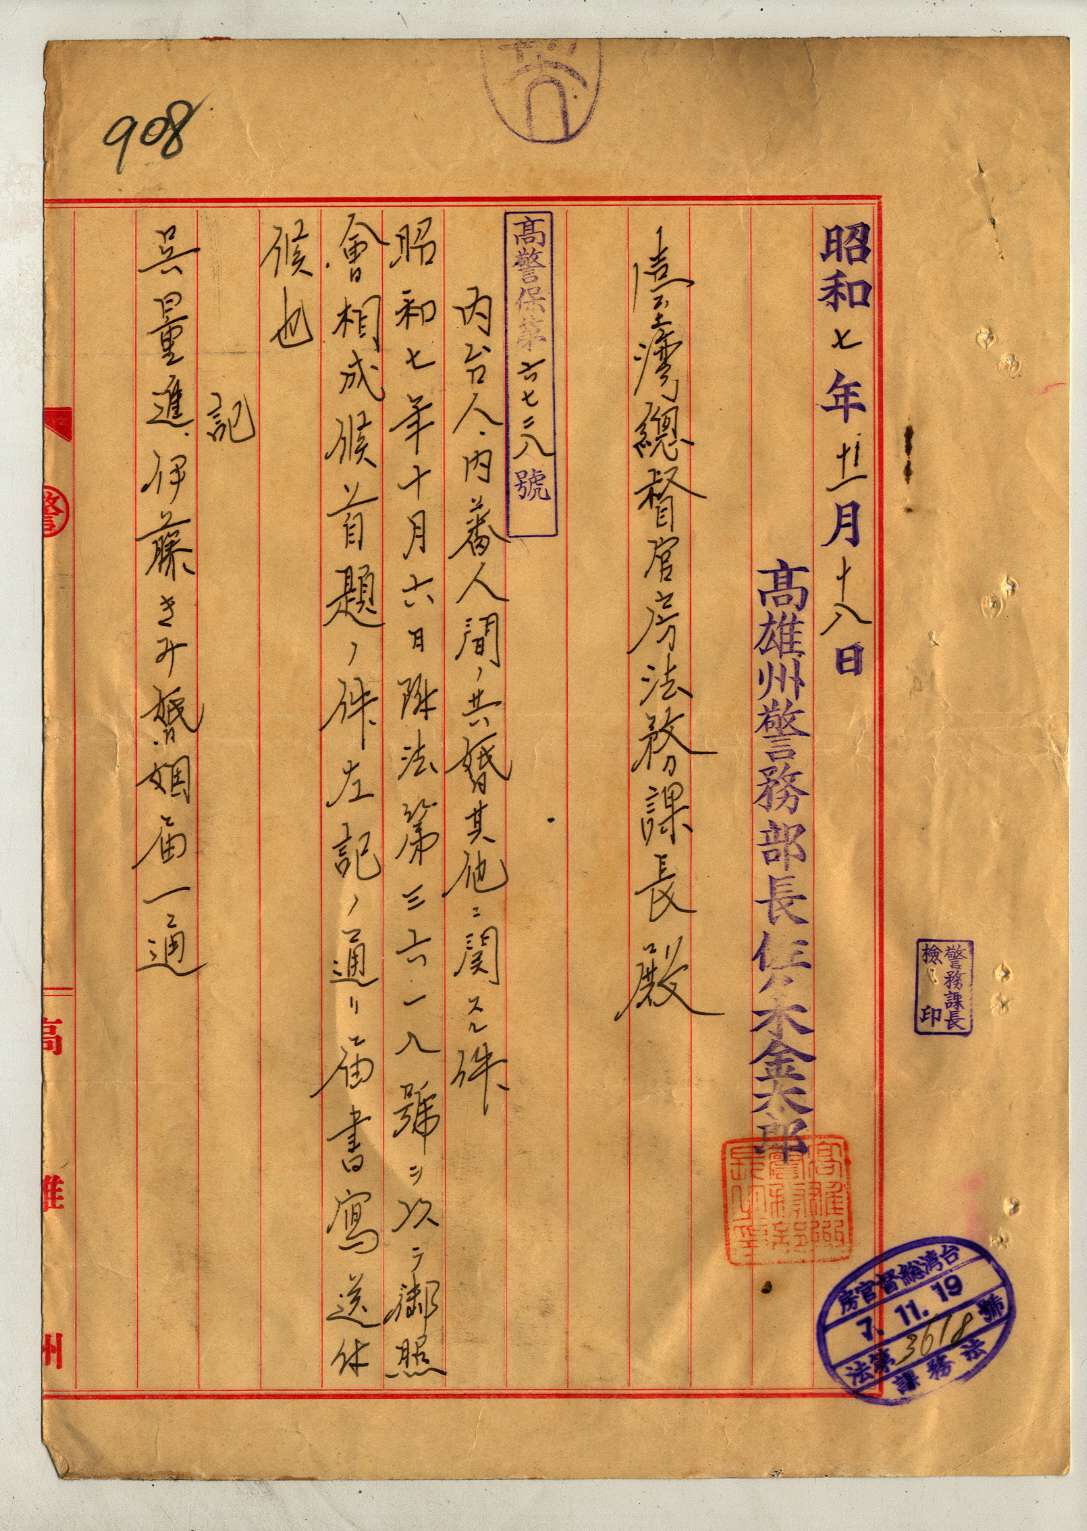 908
昭和七年十一月十八日
高雄州警務部長佐々木金太郎
臺灣總督官房法務課長殿
高警保第六七三八號
内台人、内蕃人間ノ共婚其他ニ関スル件
昭和七年十月六日附法第三六一八號ヲ以テ御照
會相成候首題ノ件左記ノ通リ届書寫送付
候也
記
呉量進、伊藤きみ婚姻届一通
警務課長
檢印
台湾総督官房
7.11.19
法第3618號
法務課
警
高雄州